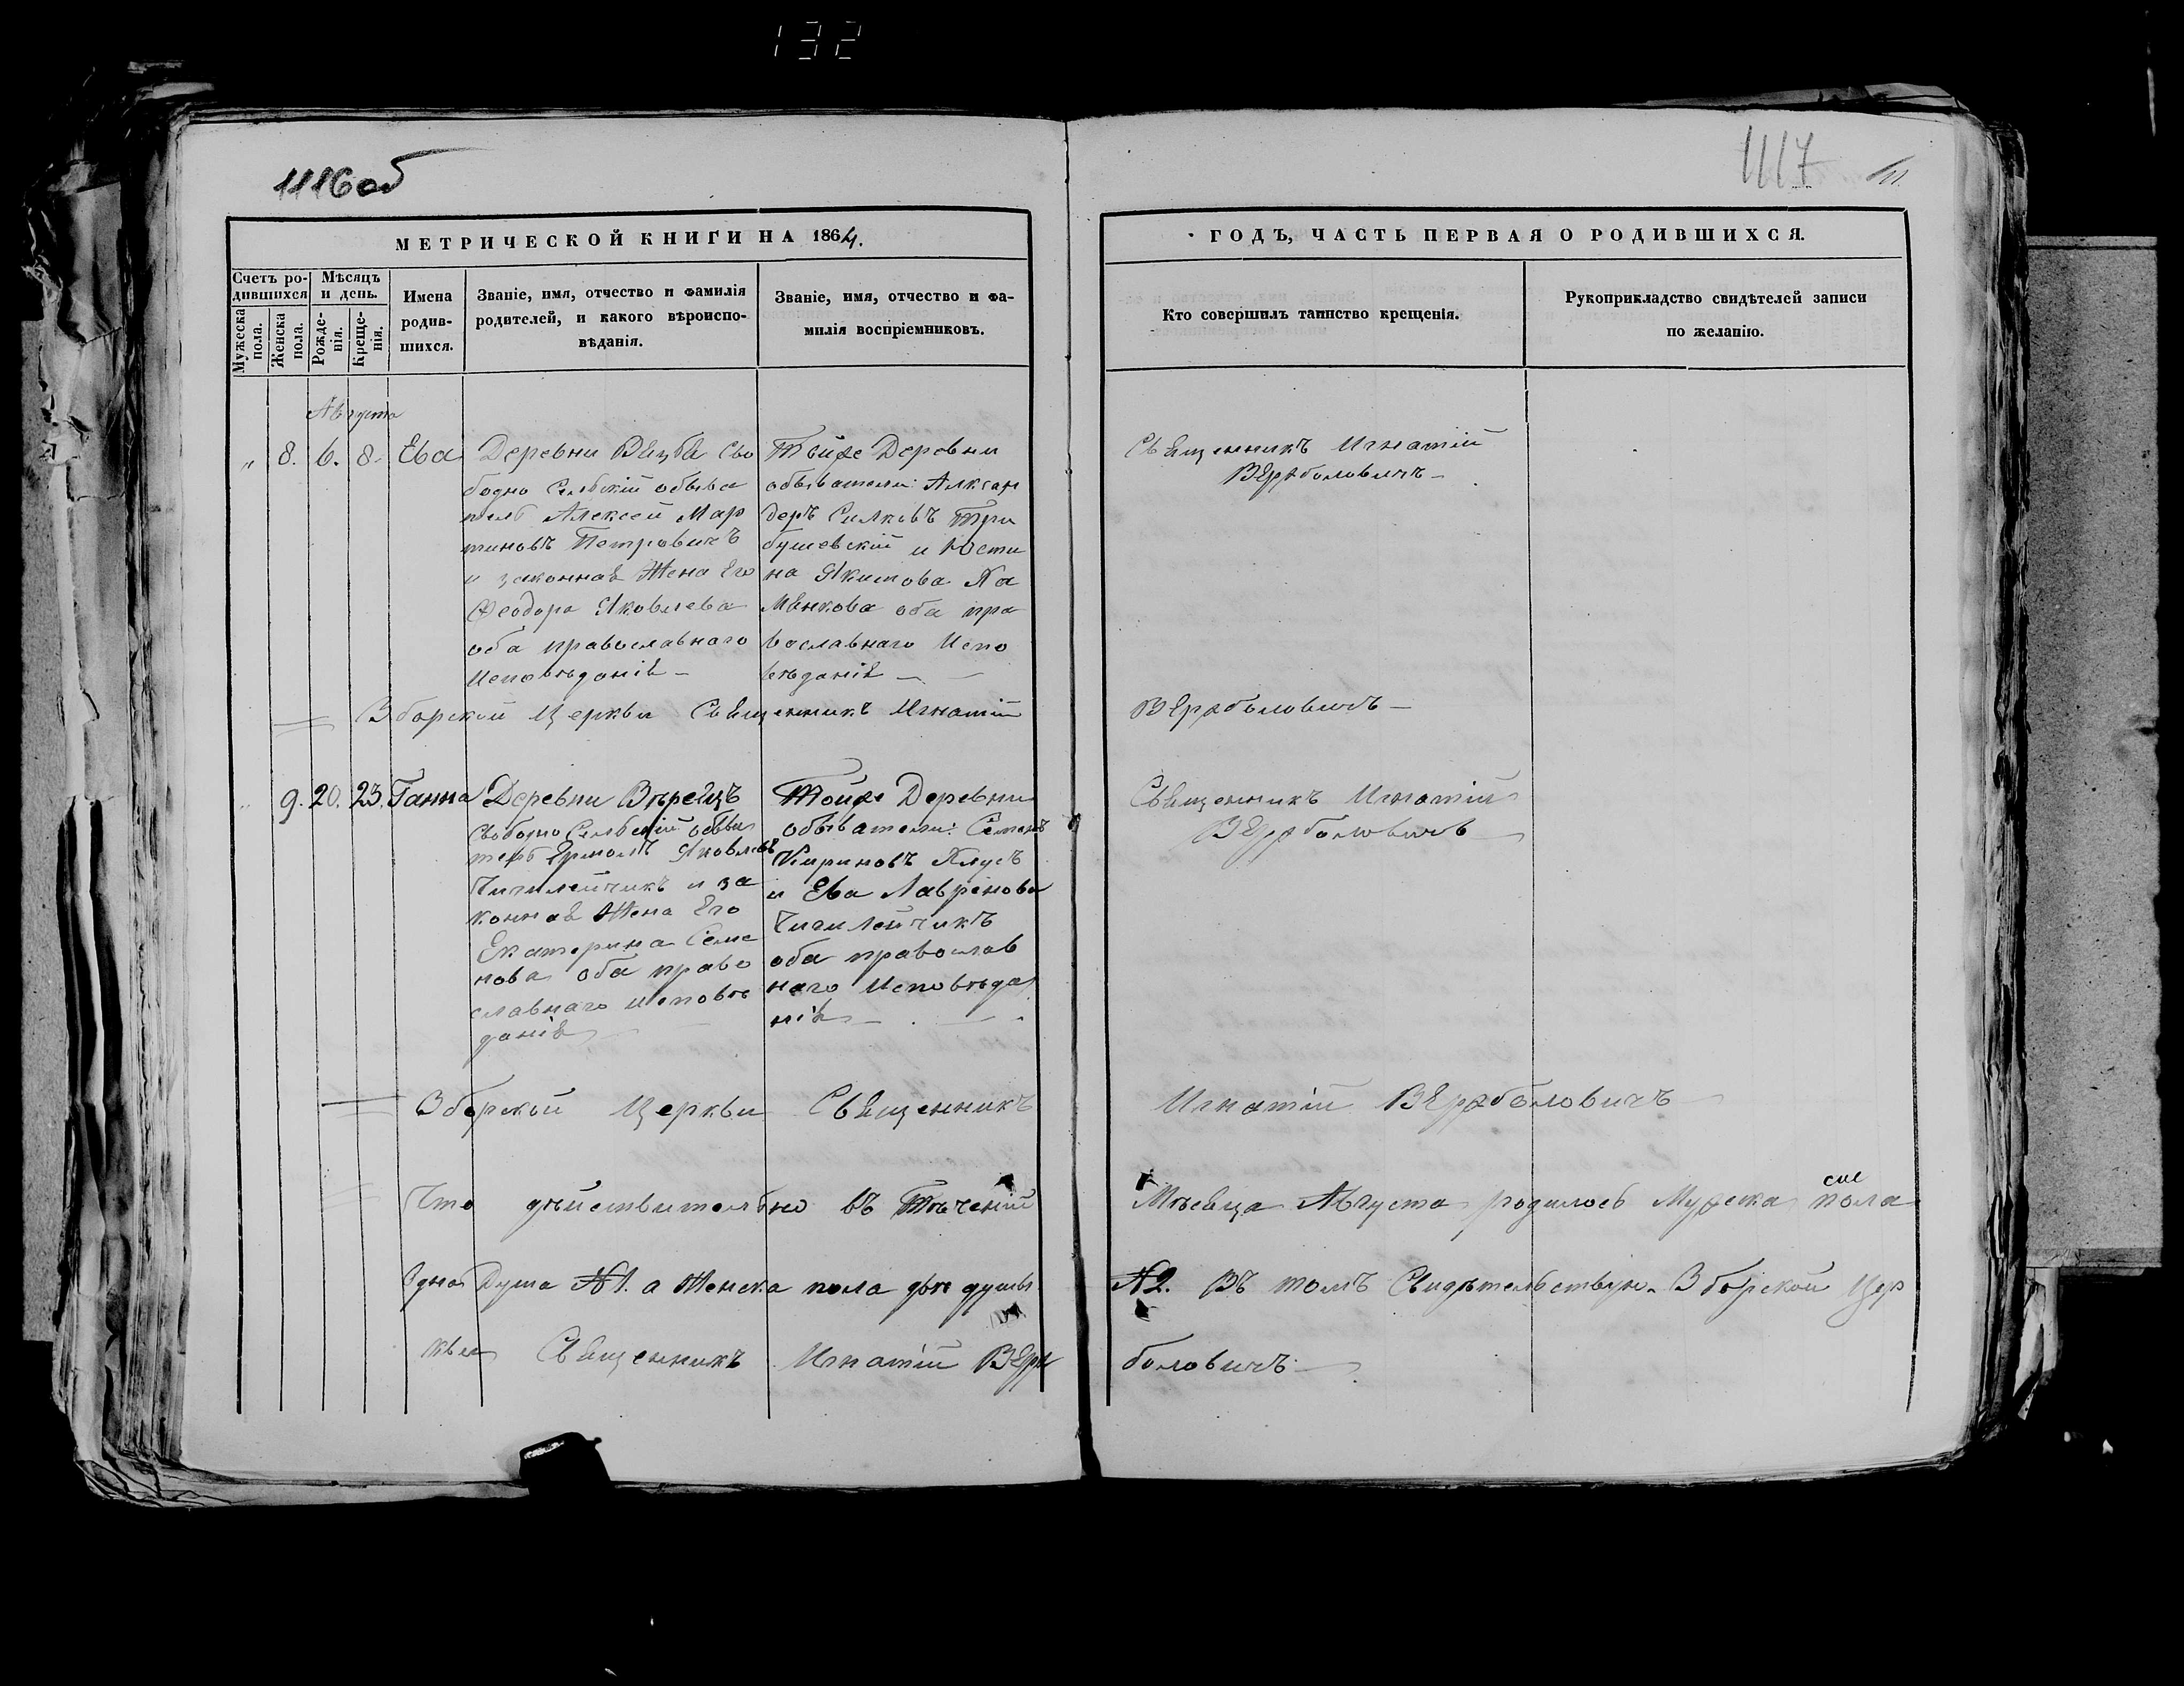 132
1116об
1117
11.
МЕТРИЧЕСКОЙ КНИГИ НА 1864.
Счетъ ро-
дившихся
Мужеска пола.
Женска пола.
Мѣсяцъ
и день.
Рожде-
нія.
Креще-
нія.
Имена
родив-
шихся.
Званіе, имя, отчество и фамилія
родителей, и какого вѣроиспо-
вѣданія.
Званіе, имя, отчество и фа-
милія воспріемниковъ.
ГОДЪ, ЧАСТЬ ПЕРВАЯ О РОДИВШИХСЯ.
Кто совершилъ таинство крещенія.
Рукоприкладство свидѣтелей записи
по желанію.
Августа
„ 8. 6. 8. Ева
Деревни Сво
бодно Сельскій обыва
тель Алексей Мар
тиновъ Петровичъ
и законная Жена Его
Феодора Яковлева
оба православного
Исповѣданія –
Тойже Деревни
обыватели: Алксан
деръ Силковъ Три
бушевскій и Юсти
на Якимова Ка
Мѣнкова оба пра
вославнаго Испо
вѣданія –
Священникъ Игнатій
Вержболовичъ –
Зборской Церкви Священникъ Игнатій
Вержболовичъ –
9. 20. 23. Ганна
Деревни Вѣрейцъ
Свободно Сельскій обыва
тель Ермолъ Яковлевъ
Чигилейчикъ и за
конная Жена Его
Екатерина Семе
нова оба право
славнаго исповѣ
данія
Тойже Деревни
обыватели: Семенъ
Кириновъ Клусъ
и Ева Лавренова
Чигилейчикъ
оба православ
наго Исповѣда
нія –
Священникъ Игнатій
Вержболовичъ
Зборской Церкви Священникъ
Игнатій Вержболовичъ
Что дѣйствительно въ Тѣченіи
Мѣсяца Августа родилось Мужеска пола
сие
Одна Душа №1. а Женска пола двѣ душы
№2. Въ томъ Свидѣтельствую. Зборской Цер
кви Священникъ Игнатій Верж
боловичъ